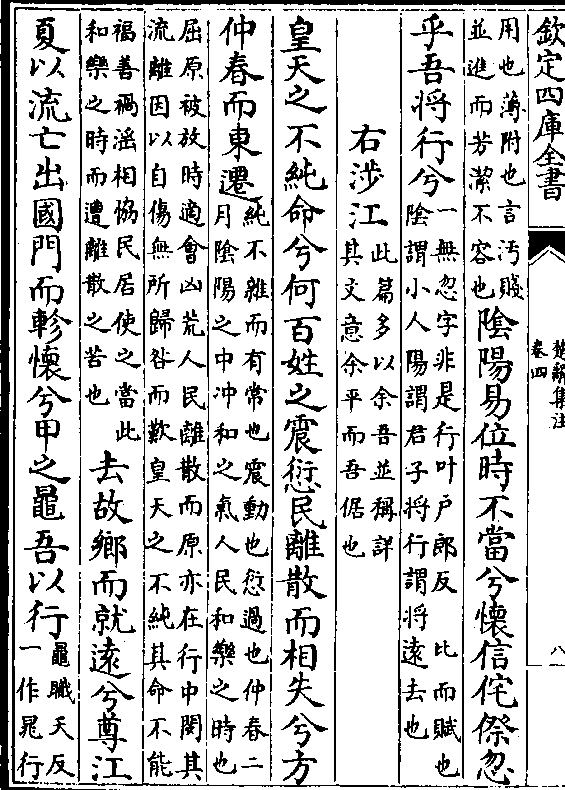 欽定四庫全書
楚辭集注
卷四
八
用也薄附也言汚賤
並進而芳潔不容也
陰陽易位時不當兮懷信侘傺忽
乎吾將行兮
一無忽字非是行叶户郎反 比而賦也
陰謂小人陽謂君子將行謂將遠去也
右涉江
此篇多以余吾並稱詳
其文意余平而吾倨也
皇天之不純命兮何百姓之震愆民離散而相失兮方
仲春而東遷
純不雜而有常也震動也愆過也仲春二
月陰陽之中冲和之氣人民和樂之時也
屈原被放時適會凶荒人民離散而原亦在行中閔其
流離因以自傷無所歸咎而歎皇天之不純其命不能
福善禍滛相協民居使之當此
和樂之時而遭離散之苦也
去故鄉而就遠兮尊江
夏以流亡出國門而軫懷兮甲之鼂吾以行
鼂䟆夭反
一作晁行